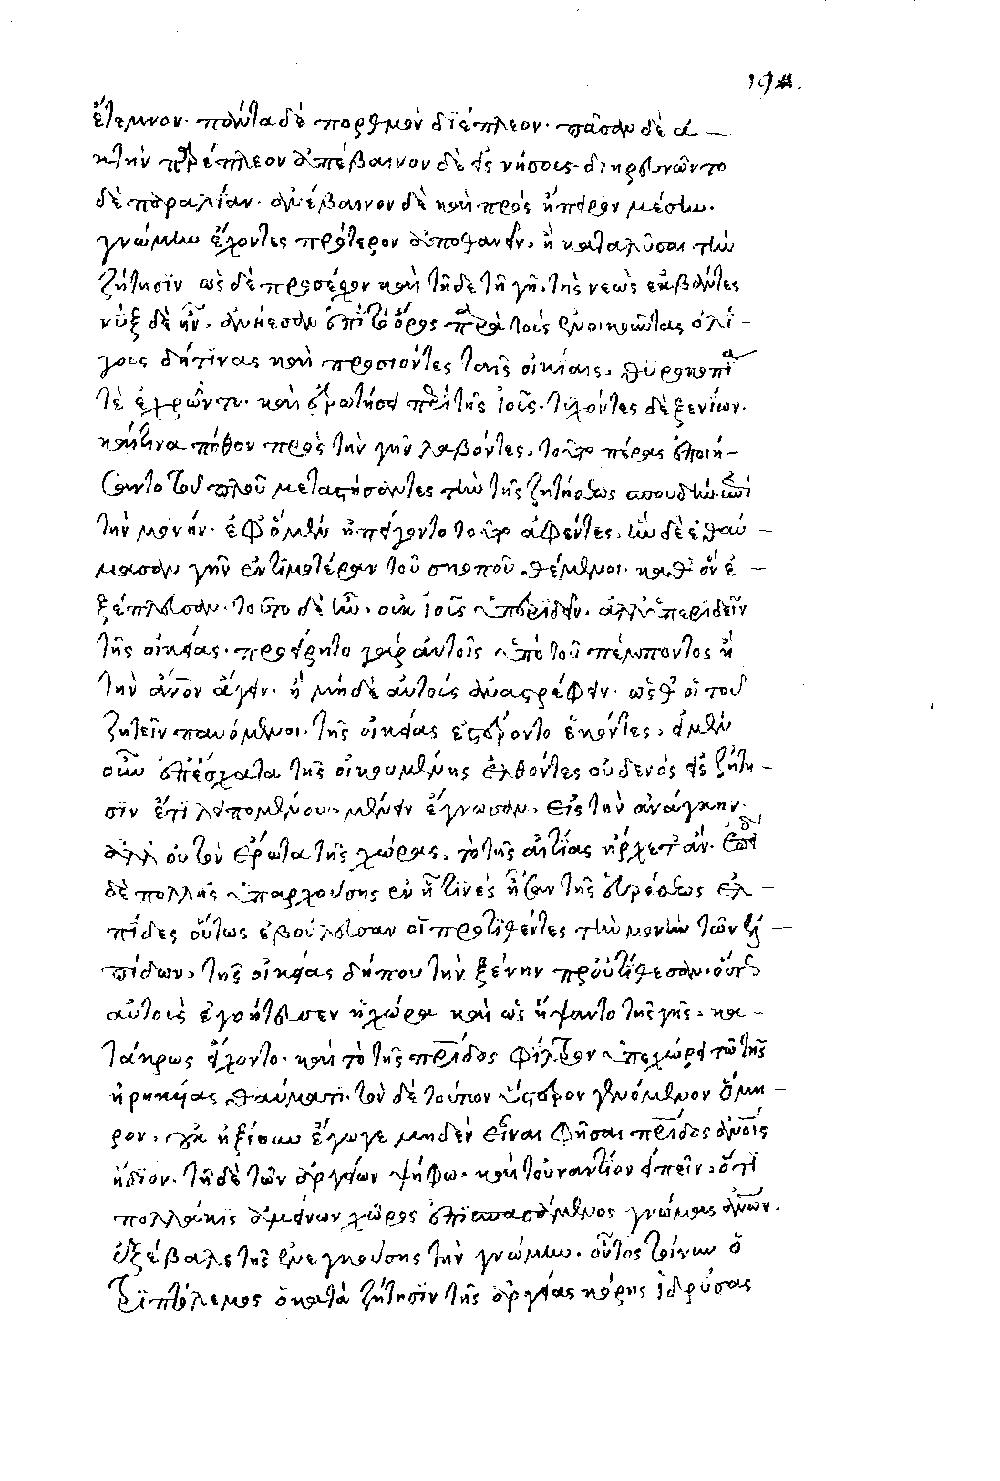 194.
ἔτεμνον· πάντα δὲ πορθμὸν διέπλεον· πᾶσαν δὲ ἀ-
κτὴν παρέπλεον ἀπέβαινον δὲ εἰς νήσους· διηρευνῶντο
δὲ παραλίαν· ἀνέβαινον δὲ καὶ πρὸς ἤπειρον μέσην·
γνώμην ἔχοντες πρότερον ἀποθανεῖν, ἢ καταλῦσαι τὴν
ζήτησιν ὡς δὲ προσέσχον καὶ τῇδε τῇ γῇ, τῆς νεὼς ἐκβάντες
νὺξ δὲ ἦν, ἀνῄεσαν ἐπὶ τὸ ὄρος παρὰ τοὺς ἐνοικοῦντας ὀλί-
γους δή τινας καὶ προσιόντες ταῖς οἰκίαις, θυροκοπί
τε ἐχρῶντο· καὶ ἐρωτήσει περὶ τῆς Ἰοῦς· τυχόντες δὲ ξενίων·
καί τινα πόθον πρὸς τὴν γῆν λαβόντες, τοῦτο πέρας ἐποιή-
σαντο τοῦ πλοῦ μεταστήσαντες τὴν τῆς ζητήσεως σπουδὴν ἐπὶ
τὴν μονήν· ἐφ' ὃ μὲν ἠπείγοντο τοῦτο ἀφέντες, ἣν δὲ ἐθαύ-
μασαν γῆν ἐντιμοτέραν τοῦ σκοποῦ θέμενοι· καθ' ὃν ἐ-
ξέπλευσαν· τοῦτο δὲ ἦν, οὐκ Ἰοῦς ὑπεριδεῖν, ἀλλ' ὑπεριδεῖν
τῆς οἰκείας· προείρητο γὰρ αὐτοῖς ὑπὸ τοῦ πέμποντος ἢ
τὴν ἄνθρωπον ἄγειν, ἢ μηδὲ αὐτοὺς ἀναστρέφειν· ὥσθ' οἱ τοῦ
ζητεῖν παυόμενοι, τῆς οἰκείας ἐστέροντο ἑκόντες, εἰ μὲν
οὖν ἐπ' ἔσχατα τῆς οἰκουμένης ἐλθόντες οὐδενὸς εἰς ζήτη-
σιν ἔτι λειπομένου, μένειν ἔγνωσαν, εἰς τὴν ἀνάγκην·
ἀλλ' οὐ τὸν ἔρωτα τῆς χώρας, τὸ τῆς αἰτίας ἤρχετ' ἄν· ἐπεὶ
δὲ πολλῆς ὑπαρχούσης ἐν ᾗ τινὲς ἦσαν τῆς εὑρέσεως ἐλ-
πίδες οὕτως ἐβουλεύσαντο οἱ προτιθέντες τὴν μονὴν τῶν ἐλ-
πίδων, τῆς οἰκείας δήπου τὴν ξένην προὐτίθεσαν· οὕτως
αὐτοὺς ἐγοήτευσεν ἡ χώρα καὶ ὡς ἥψαντο τῆς γῆς, κα-
τάκρως εἴχοντο· καὶ τὸ τῆς πατρίδος φίλτρον ὑπεχώρει τῷ τῆς
εὑρημένης θαύματι· τὸν δὲ τούτων ὕστερον γενόμενον Ὅμη-
ρον, οὐκ ἠξίουν ἔγωγε μηδὲν εἶναι φῆσαι πατρίδος ἀνθρώποις
ἥδιον· τῇ δὲ τῶν ἀργείων ψήφῳ, καὶ τοὐναντίον εἰπεῖν, ὅτι
πολλάκις ἀμείνων χῶρος ἐπισπασάμενος γνώμας ἀνθρώπων,
ἐξέβαλε τῆς ἐνεγκούσης τὴν γνώμην. οὗτος τοίνυν ὁ
Τριπτόλεμος ὁ κατὰ ζήτησιν τῆς ἀργείας κόρης ἱδρύσας